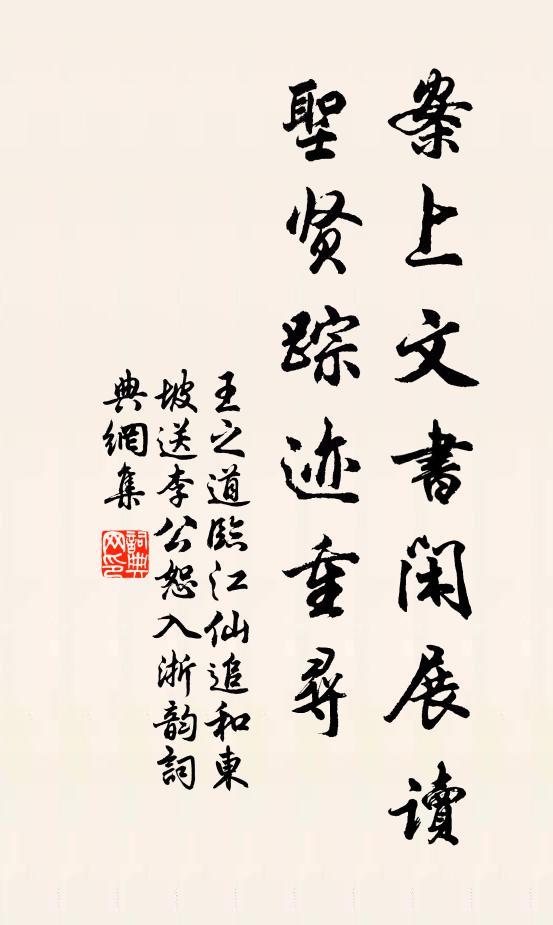 案上文書閑展讀
聖贤踪迹重尋
王之道臨江仙追和東
坡送李公恕入浙韵詞
典網集
詞典
网印